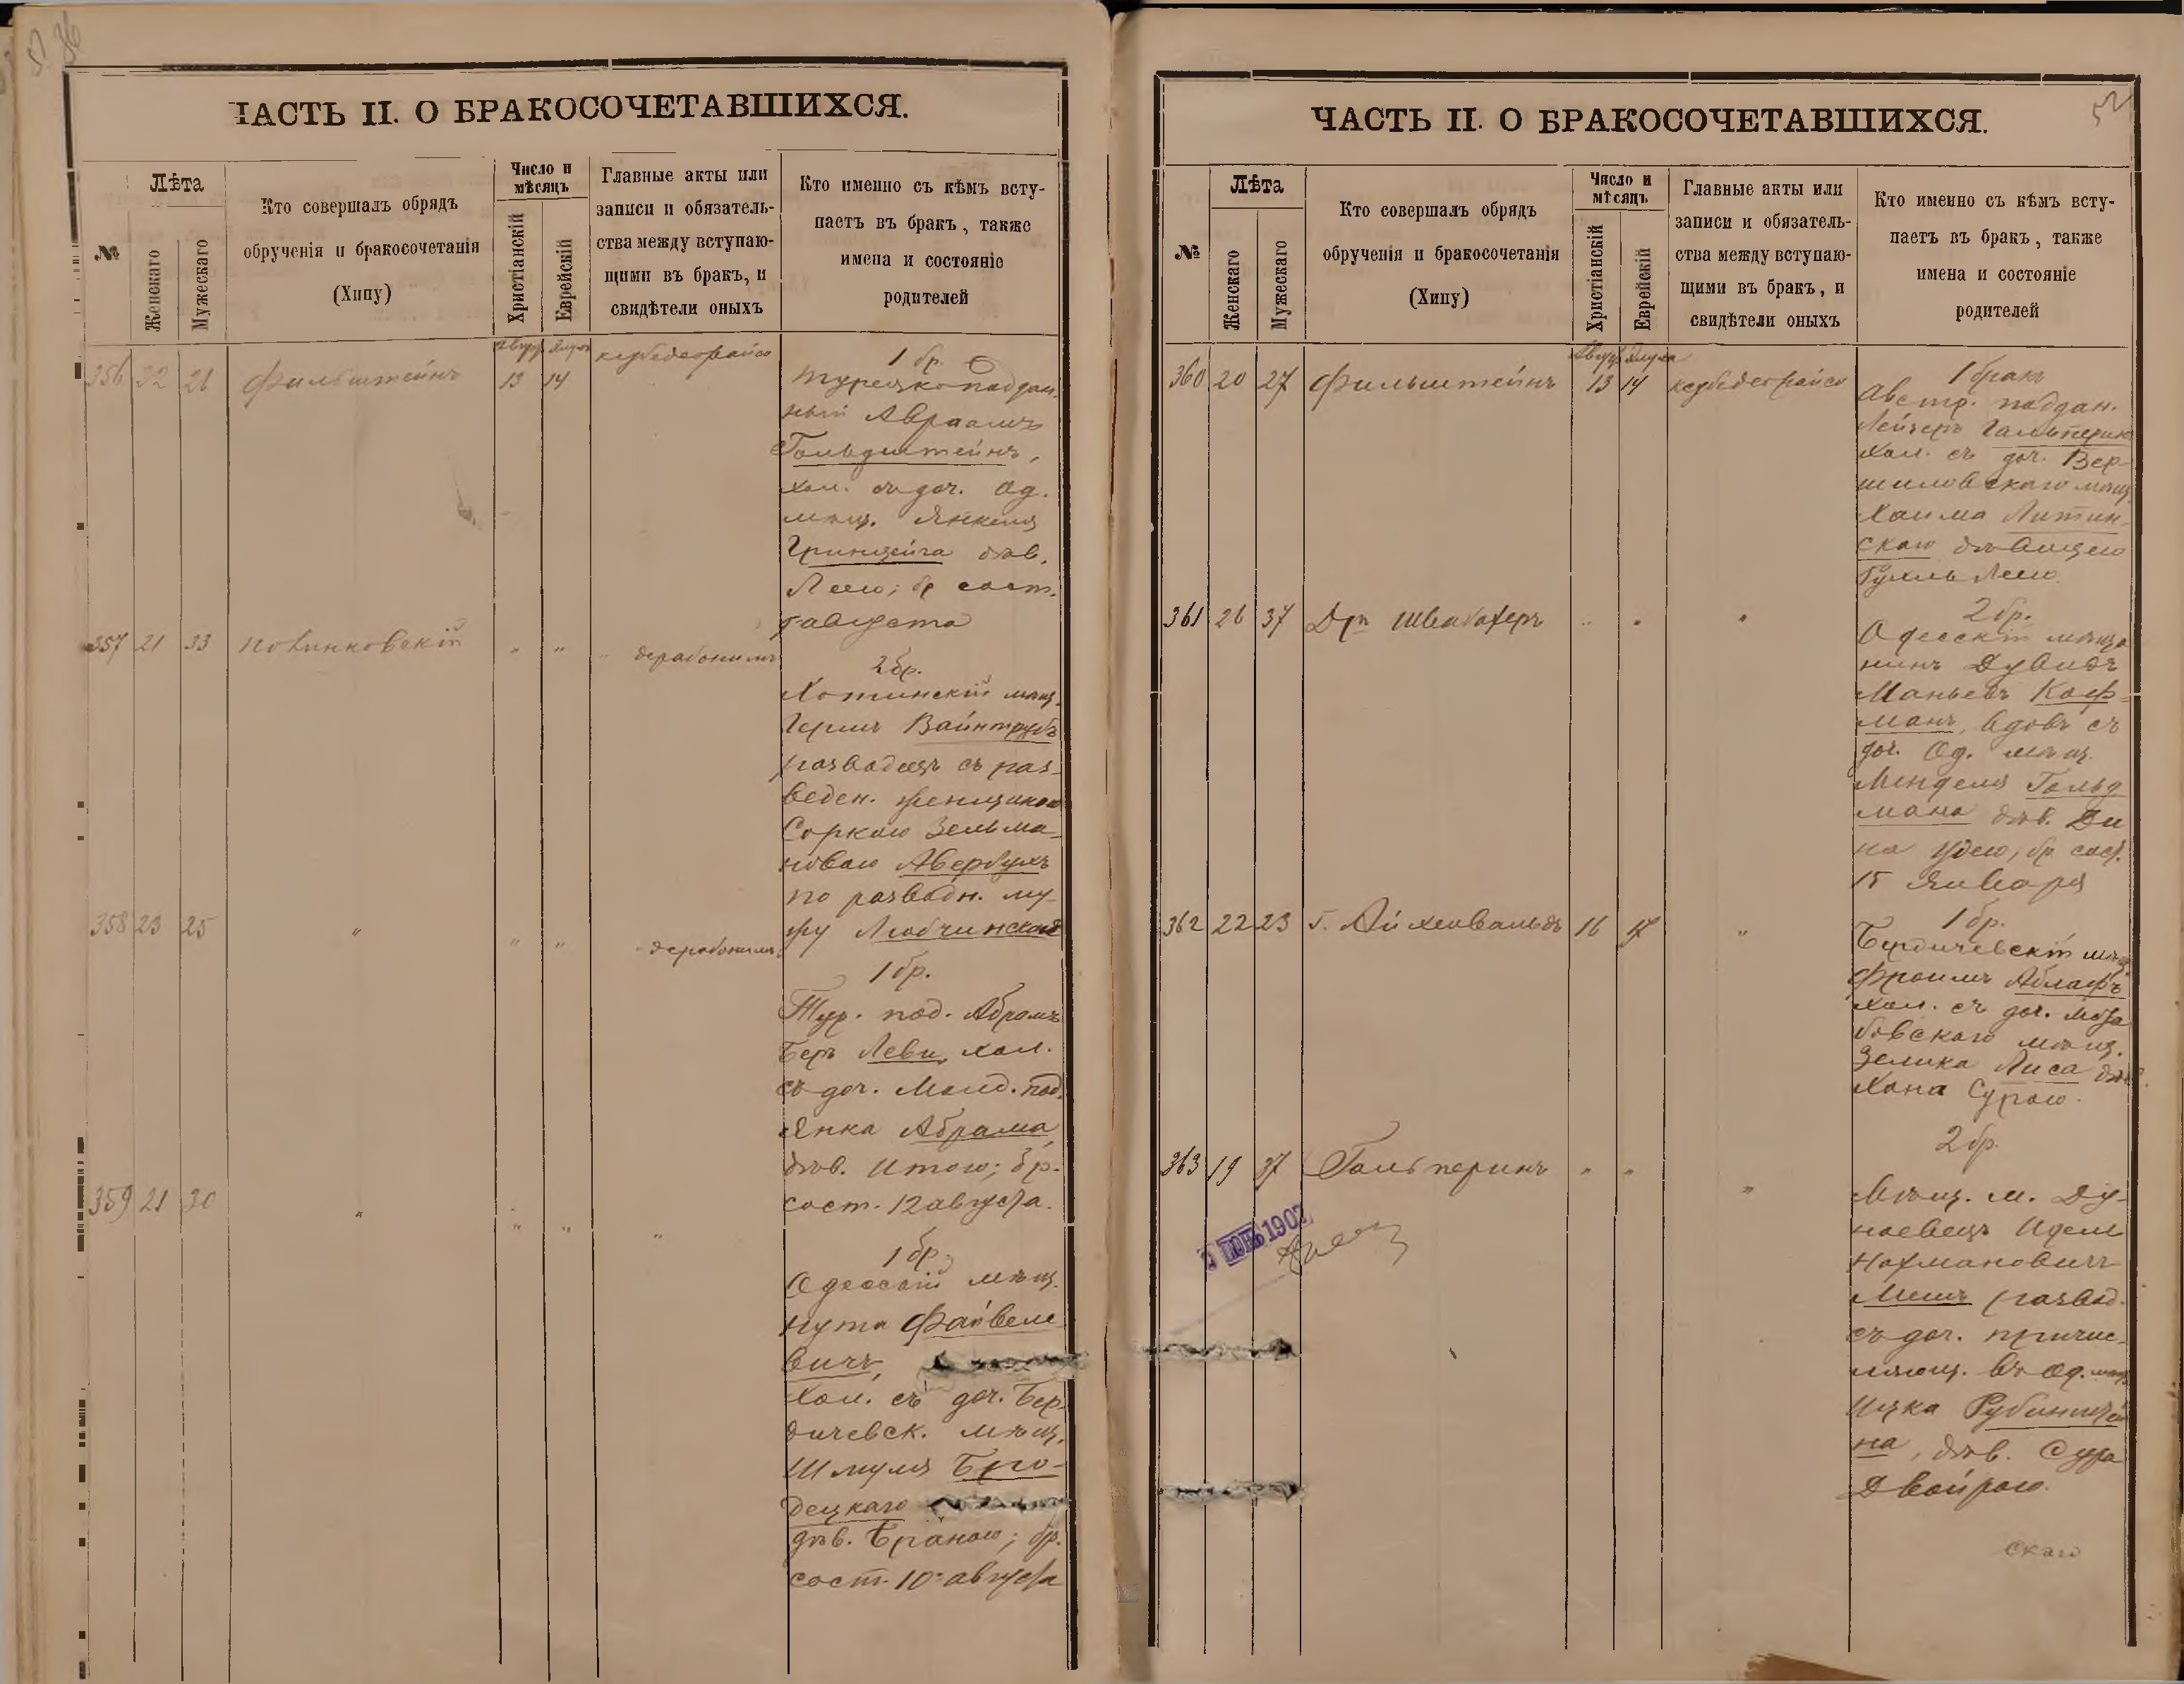 ЧАСТЬ II. О БРАКОСОЧЕТАВШИХСЯ.
№
Лѣта
Женскаго
Мужескаго
Кто совершалъ обрядъ
обрученія и бракосочетанія
(Хипу)
Число и
мѣсяцъ
Христіанскій
Еврейскій
Главные акты или
записи и обязатель-
ства между вступаю-
щими въ бракъ, и
свидѣтели оныхъ
Кто именно съ кѣмъ всту-
паетъ въ бракъ, также
имена и состояніе
родителей
356 22 21 Фильштейнъ 13 14
1 бр.
турецкоподдан-
ный Авраамъ
Гольдштейнъ,
хол. съ доч. Од.
мѣщ. Янкеля
дѣв.
Леею; бр сост.
7 августа
357 21 33 Новинковскій " "
2 бр.
Хотинскій мѣщ.
Герш Вайнтрубъ
разводецъ съ раз-
веден. женщиною
Соркаю Зельма-
новою Авербухъ
по разводн. му-
жу Любчинской
358 23 25 " " "
1 бр.
Тур. под. Абрамъ
Беръ Леви, хол.
съ доч. Молд. под.
Янка Абрама,
дѣв. Итою; бр.
сост. 12 августа.
359 21 30 " " " "
1 бр.
Одесскій мѣщ.
Нута Файвеле-
вичъ,
хол. съ доч. Бер-
дичевск. мѣщ.
Шмуля Бро-
децкаго
дѣв. Браною; бр.
сост. 10 августа
ЧАСТЬ II. О БРАКОСОЧЕТАВШИХСЯ.
52
№
Лѣта
Женскаго
Мужескаго
Кто совершалъ обрядъ
обрученія и бракосочетанія
(Хипу)
Число и
мѣсяцъ
Христіанскій
Еврейскій
Главные акты или
записи и обязатель-
ства между вступаю-
щими въ бракъ, и
свидѣтели оныхъ
Кто именно съ кѣмъ всту-
паетъ въ бракъ, также
имена и состояніе
родителей
360 20 27 Фильштейнъ 13 14
1 бракъ
Австр. поддан.
Лейзеръ Гальперинъ
хол. съ доч. Вер-
шиловскаго мѣщ.
Хаима Литин-
скаго дѣвицею
Леею
361 26 37 Дръ Швабахеръ " " "
2 бр.
Одесскій мѣща
нинъ Дувидъ
Маньевъ Коф-
манъ, вдовъ съ
доч. Од. мѣщ.
Менделя Гольд
мана дѣв. Ди
на Удею, бр. сост.
15 Января
362 22 23 Г. Айхенвальдъ 16 17 "
1 бр.
Бердичевскій мѣщ
Фроимъ Аблафъ
хол. съ доч.
мѣщ.
Зелика Лиса дѣв.
Хана Сурою.
363 19 37 Гальперинъ " " "
2 бр.
Мѣщ. м. Ду-
наевецъ Идель
Нахмановичъ
развод.
съ доч. причис-
ляющ. въ Од. мѣщ.
Ицка Рубинштей
на, дѣв. Сура
Двойрою.
1907
скаго